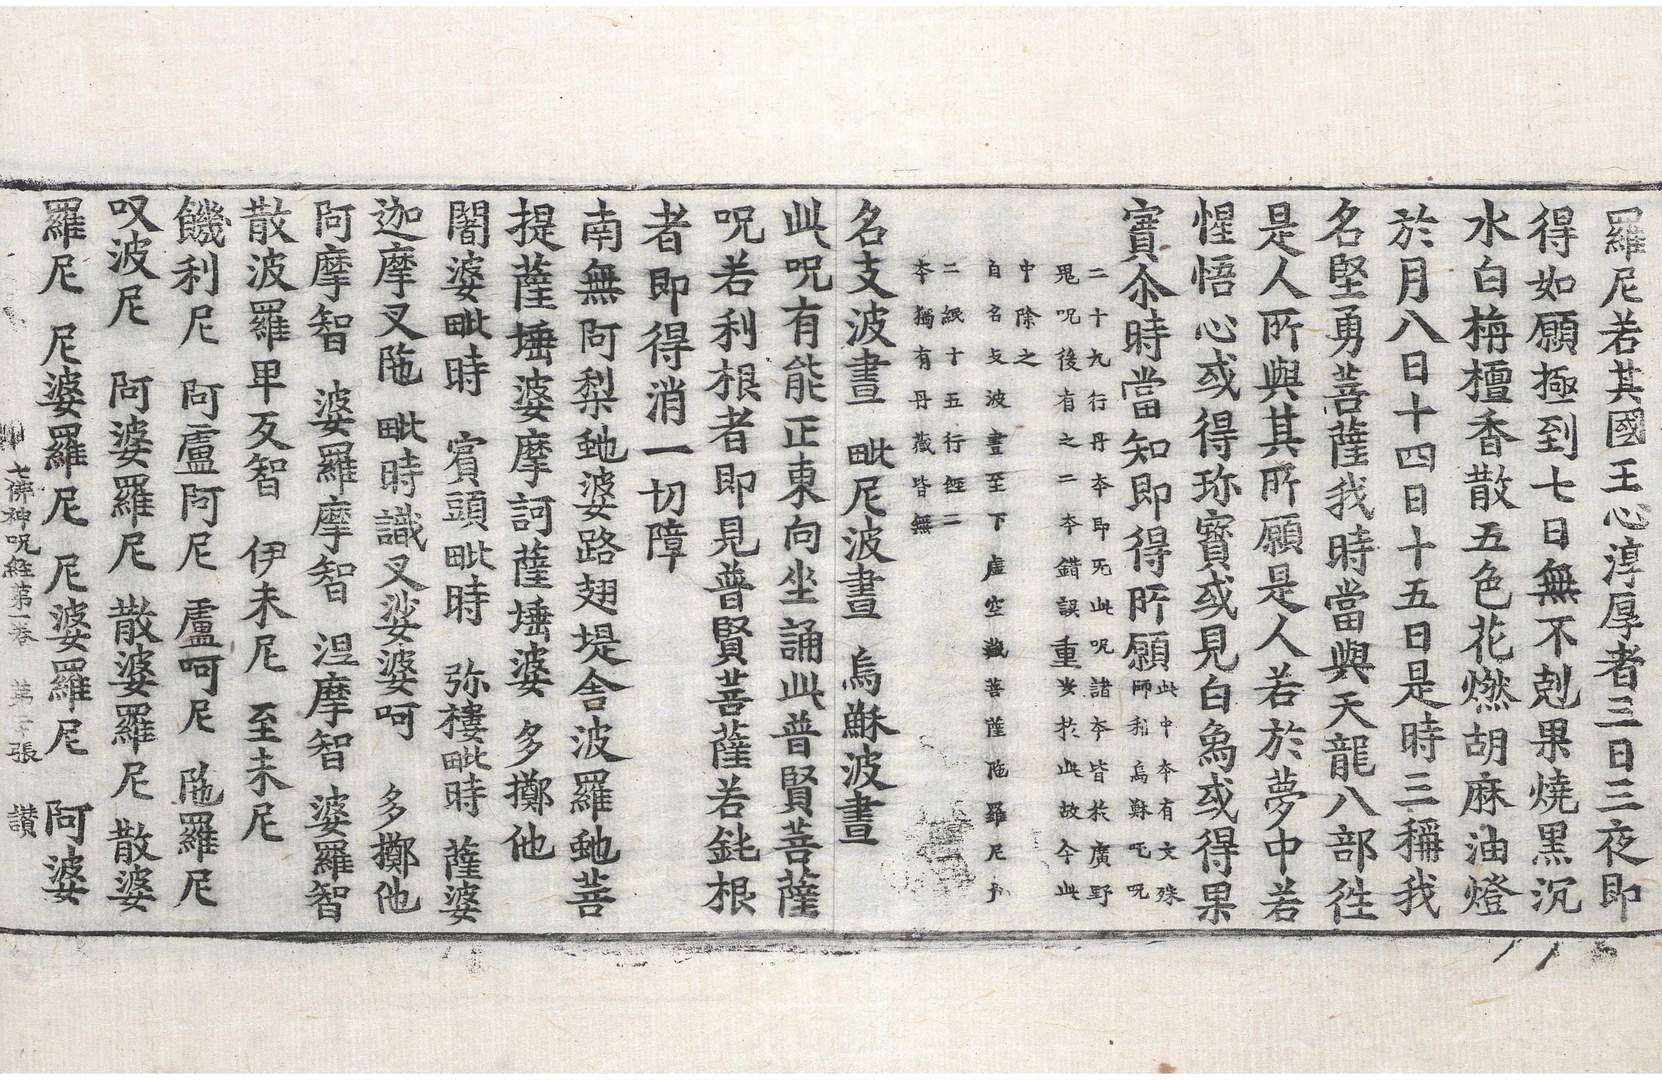 羅尼若其國王心淳厚者三日三夜即
得如願極到七日無不剋果燒黑沉
水白栴檀香散五色花燃胡麻油燈
於月八日十四日十五日是時三稱我
名堅勇菩薩我時當與天龍八部徃
是人所與其所願是人若於夢中若
惺悟心或得珎寳或見白鳥或得果
寳尒時當知即得所願此中夲有文殊
師利烏穌吒呪
二十九行丹夲即死此呪諸夲皆扵廣野
鬼呪後有之二夲錯誤重安扵此故今此
中除之
自名攴波晝至下虛空藏菩薩陁羅尼
二紙十五行經二
夲獨有丹藏皆無
名支波晝 毗尼波晝 烏穌波晝
此呪有能正東向坐誦此普賢菩薩
呪若利根者即見普賢菩薩若鈍根
者即得消一切障
南無阿梨虵婆路翅堤舍波羅虵菩
提薩埵婆摩訶薩埵婆 多擲他
闍婆毗時 賓頭毗時 弥樓毗時 薩婆
迦摩叉陁 毗時識叉娑婆呵 多擲他
阿摩智 婆羅摩智 涅摩智 婆羅智
散波羅甲㕛智 伊未尼 至未尼
饑利尼 阿盧阿尼 盧呵尼 陁羅尼
叹波尼 阿婆羅尼 散婆羅尼 散婆
羅尼 尼婆羅尼 尼婆羅尼 阿婆
七佛神呪經第一卷 第 張 讃